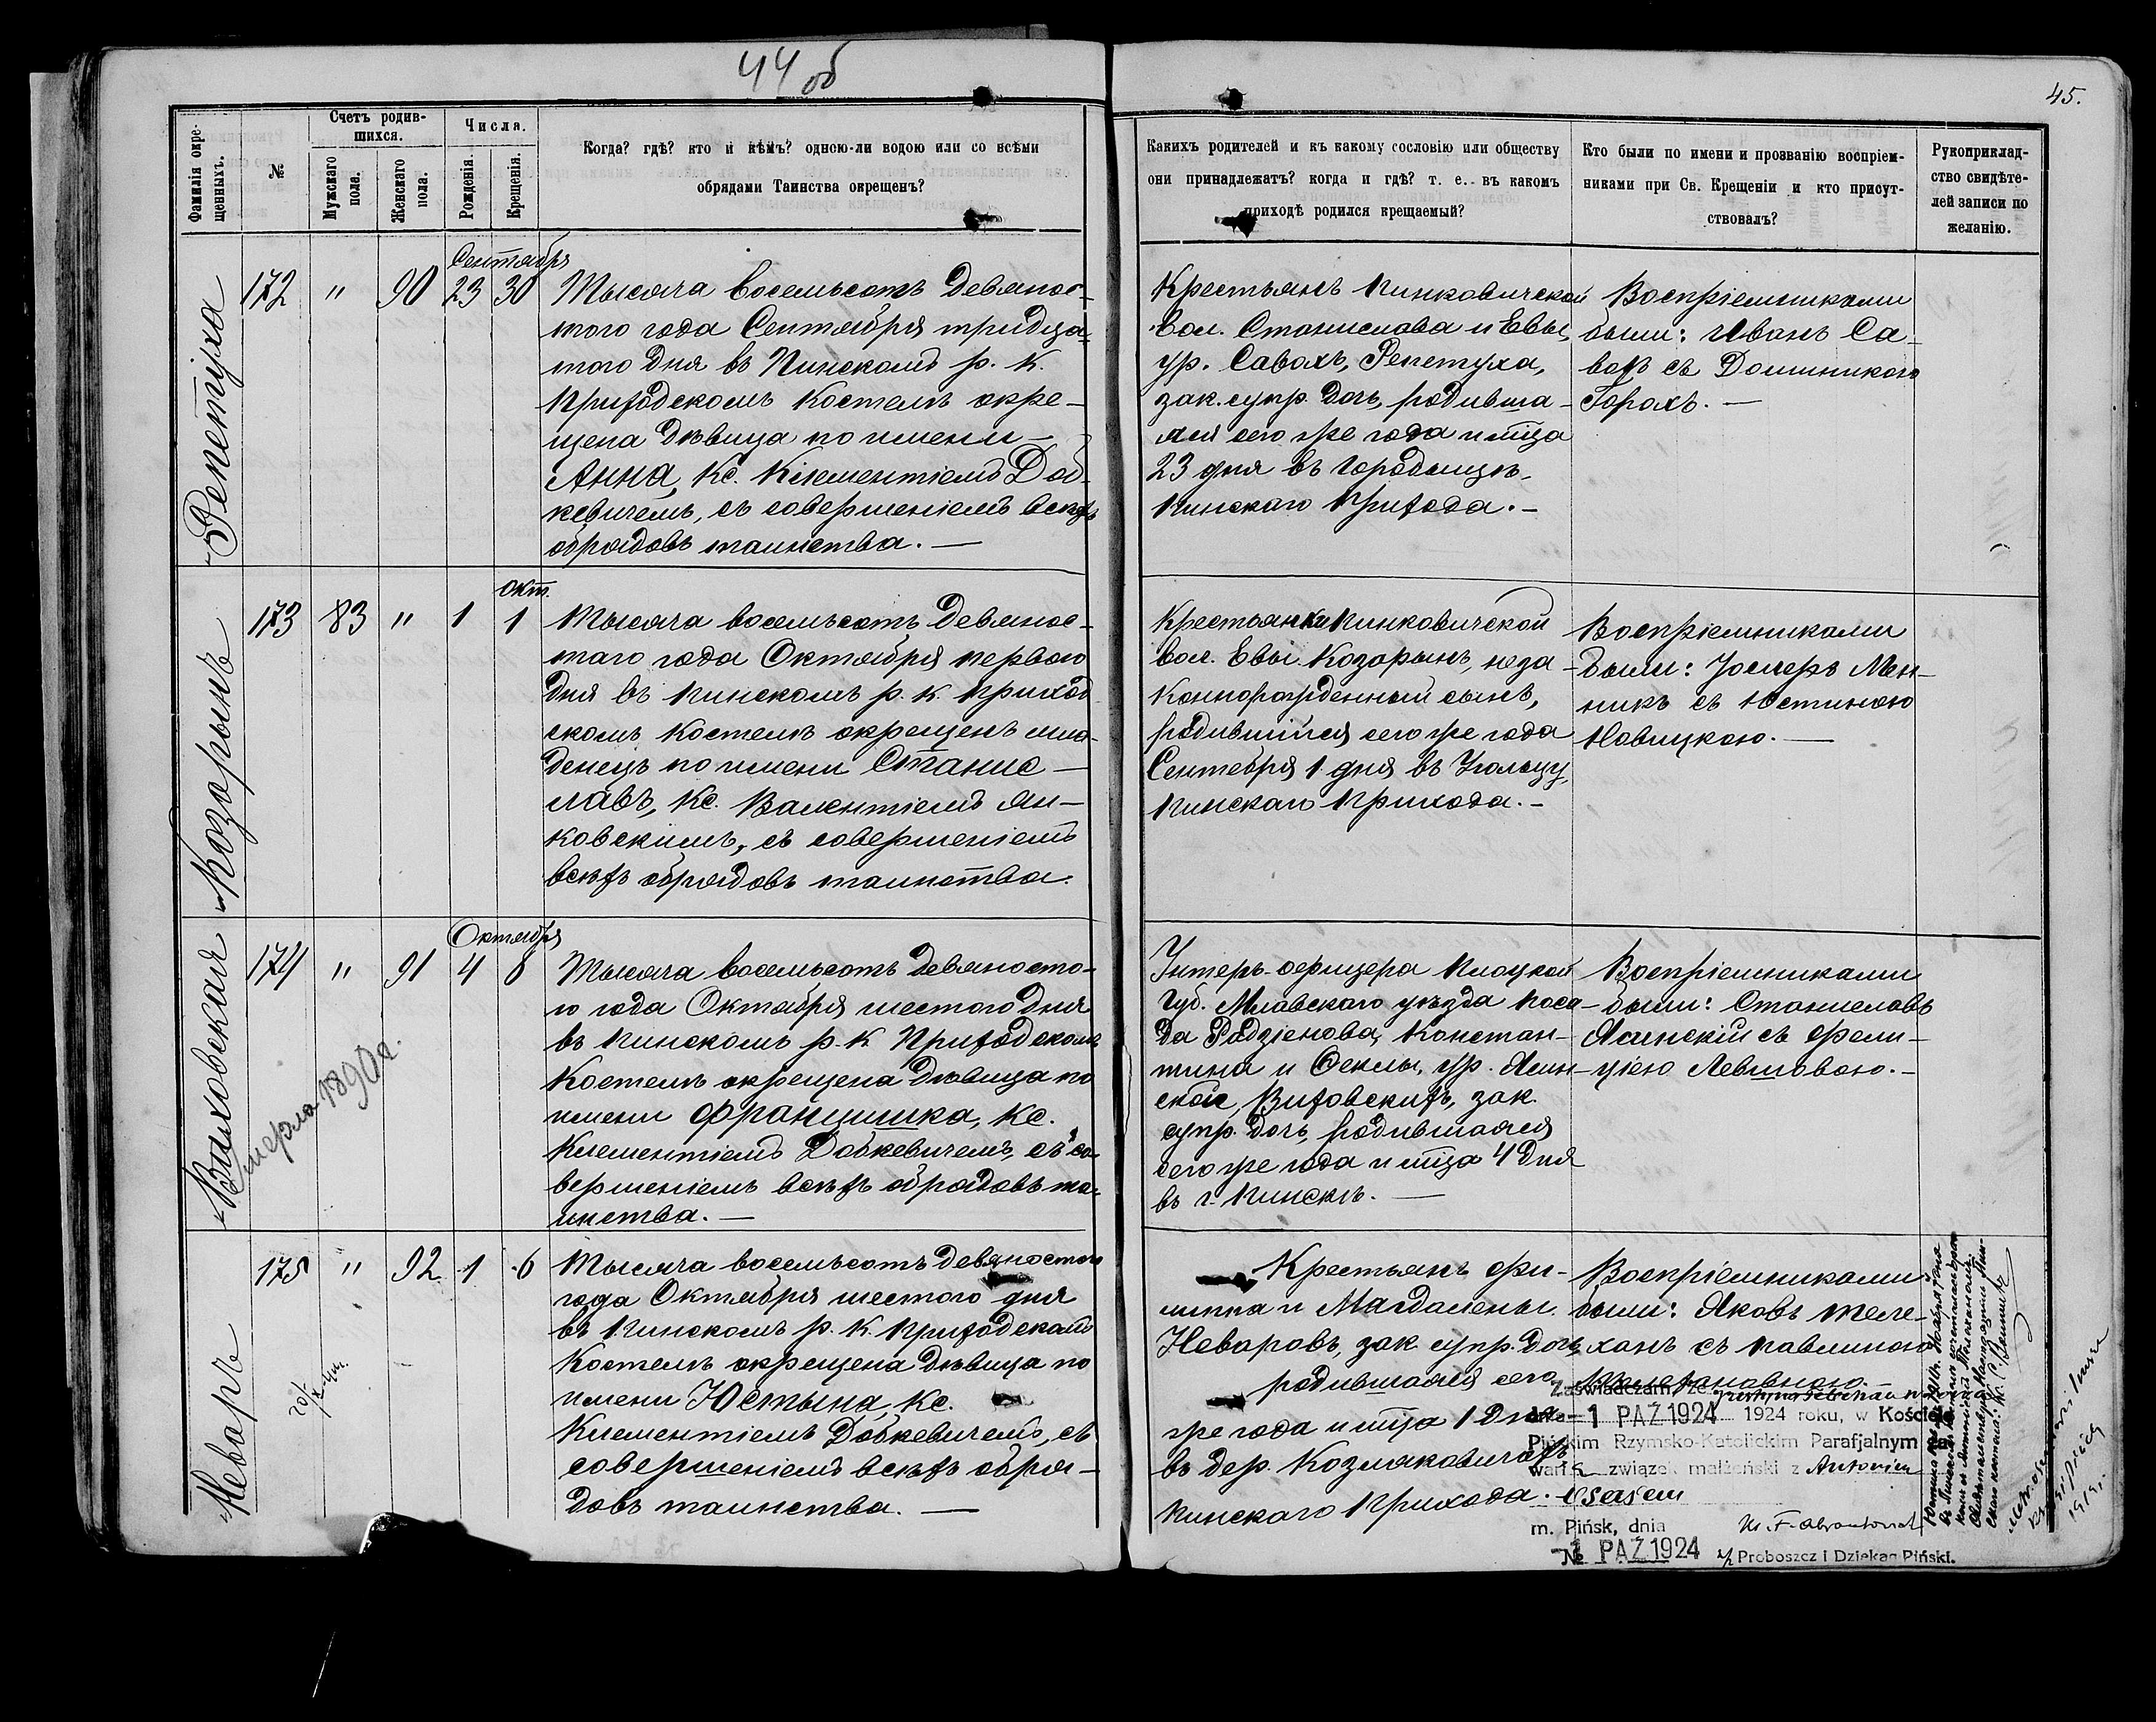 44 об
45.
Фамилія окре-
щенныхъ.
№
Счетъ родив-
шихся.
Мужскаго
пола.
Женскаго
пола.
Числа.
Рожденія.
Крещенія.
Когда? гдѣ? кто и кѣмъ? одною-ли водою или со всѣми
обрядами Таинства окрещенъ?
Какихъ родителей и къ какому сословію или обществу
они принадлежатъ? когда и гдѣ? т. е. въ какомъ
приходѣ родился крещаемый?
Кто были по имени и прозванію воспріем-
никами при Св. Крещеніи и кто присут-
ствовалъ?
Рукоприклад-
ство свидѣте-
лей записи по
желанію.
Репетуха
172 " 90 23 30
Сентябрь
Тысяча восемьсотъ девянос-
таго года Сентября тридца-
таго дня въ Пинскомъ р. к.
приходскомъ костелѣ окре-
щена дѣвица по имени
Анна, Кс. Климентіемъ Доб-
кевичемъ, съ совершеніемъ всѣхъ
обрядовъ таинства. —
Крестьянъ Пинковичской
вол. Станислава и Евы,
ур. Савахъ, Репетуха,
зак. супр. дочь, родивша-
яся сего же года и м-ца
23 дня въ Городищѣ
Пинскаго прихода. -
Воспріемниками
были: Иванъ Са-
вахъ съ Доминикою
Горахъ. —
Козорынъ
173 83 " 1 1
окт.
Тысяча восемьсотъ девянос-
таго года Октября перваго
дня въ Пинскомъ р. к. приход
скомъ костелѣ окрещенъ мла-
денецъ по имени Станис-
лавъ, Кс. Валентіемъ Ян-
ковскимъ, съ совершеніемъ
всѣхъ обрядовъ таинства.
Крестьянки Пинковичской
вол. Евы Козорынъ, неза-
коннорожденный сынъ,
родившійся сего же года
Сентября 1 дня въ
Пинскаго прихода. -
Воспріемниками
были: Мен-
никъ съ Юстиною
Новицкою. —
Вильховская
Умерла 1890 г.
174 " 91 4 8
Октября
Тысяча восемьсотъ девяносто-
го года Октября шестого дня
въ Пинскомъ р. к. приходскомъ
костелѣ окрещена дѣвица по
имени Францишка, Кс.
Климентіемъ Добкевичемъ, съ со-
вершеніемъ всѣхъ обрядовъ та-
инства. —
Унтеръ-офицера Плоцкой
губ. Млавскаго уѣзда поса-
да Радзіенова, Констан-
тина и Феклы, ур. Ясин-
ской, зак.
супр. дочь, родившаяся
сего же года и м-ца 4 дня
въ г. Пинскѣ. —
Воспріемниками
были: Станиславъ
Ясинскій съ Фели-
ціею Левшовою. -
Неваръ
175 " 92 1 6
Тысяча восемьсотъ девяностого
года Октября шестого дня
въ Пинскомъ р. к. приходскомъ
костелѣ окрещена дѣвица по
имени Юстына, Кс.
Климентіемъ Добкевичемъ, съ
совершеніемъ всѣхъ обря-
довъ таинства. —
Крестьянъ Фи-
липпа и Магдалены
Неваровъ, зак. супр. дочь,
родившаяся сего
же года и м-ца 1 дня
въ дер. Козляковичахъ
Пинскаго прихода. -
Воспріемниками
были: Яковъ Теле-
ханъ съ Павлиною
Zaświadczam, że
dnia - 1 PAŹ 1924 1924 roku, w Kościele
Pińskim Rzymsko-Katolickim Parafjalnym za-
warła związek małżeński z Antonim
m. Pińsk, dnia
- 1 PAŹ 1924
№
Proboszcz i Dziekan Piński.
1919.